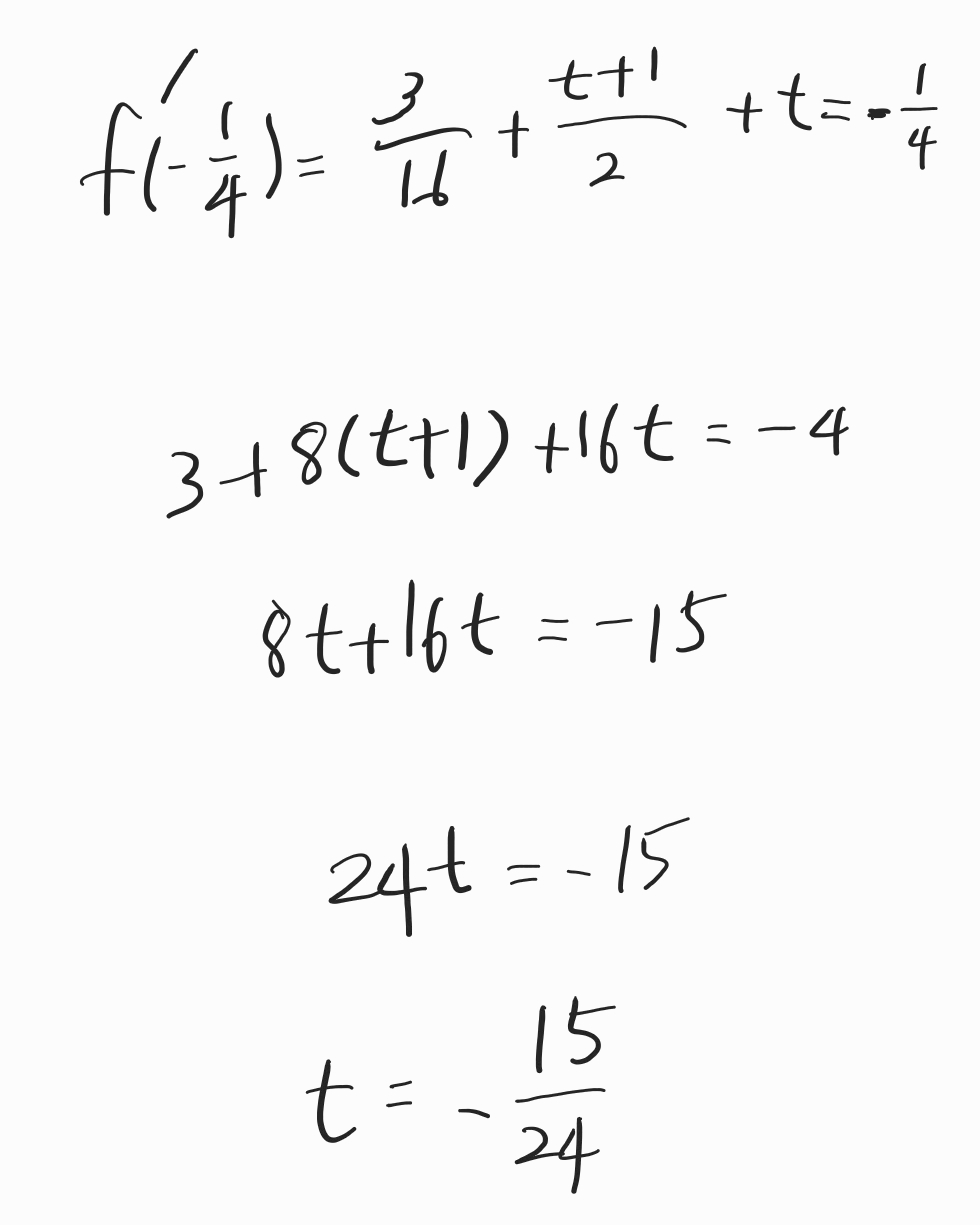 f'(-1/4) = 3/16 + (t+1)/2 + t = -1/4
3+8(t+1)+16t = -4
8t+16t = -15
24t = -15
t = -15/24